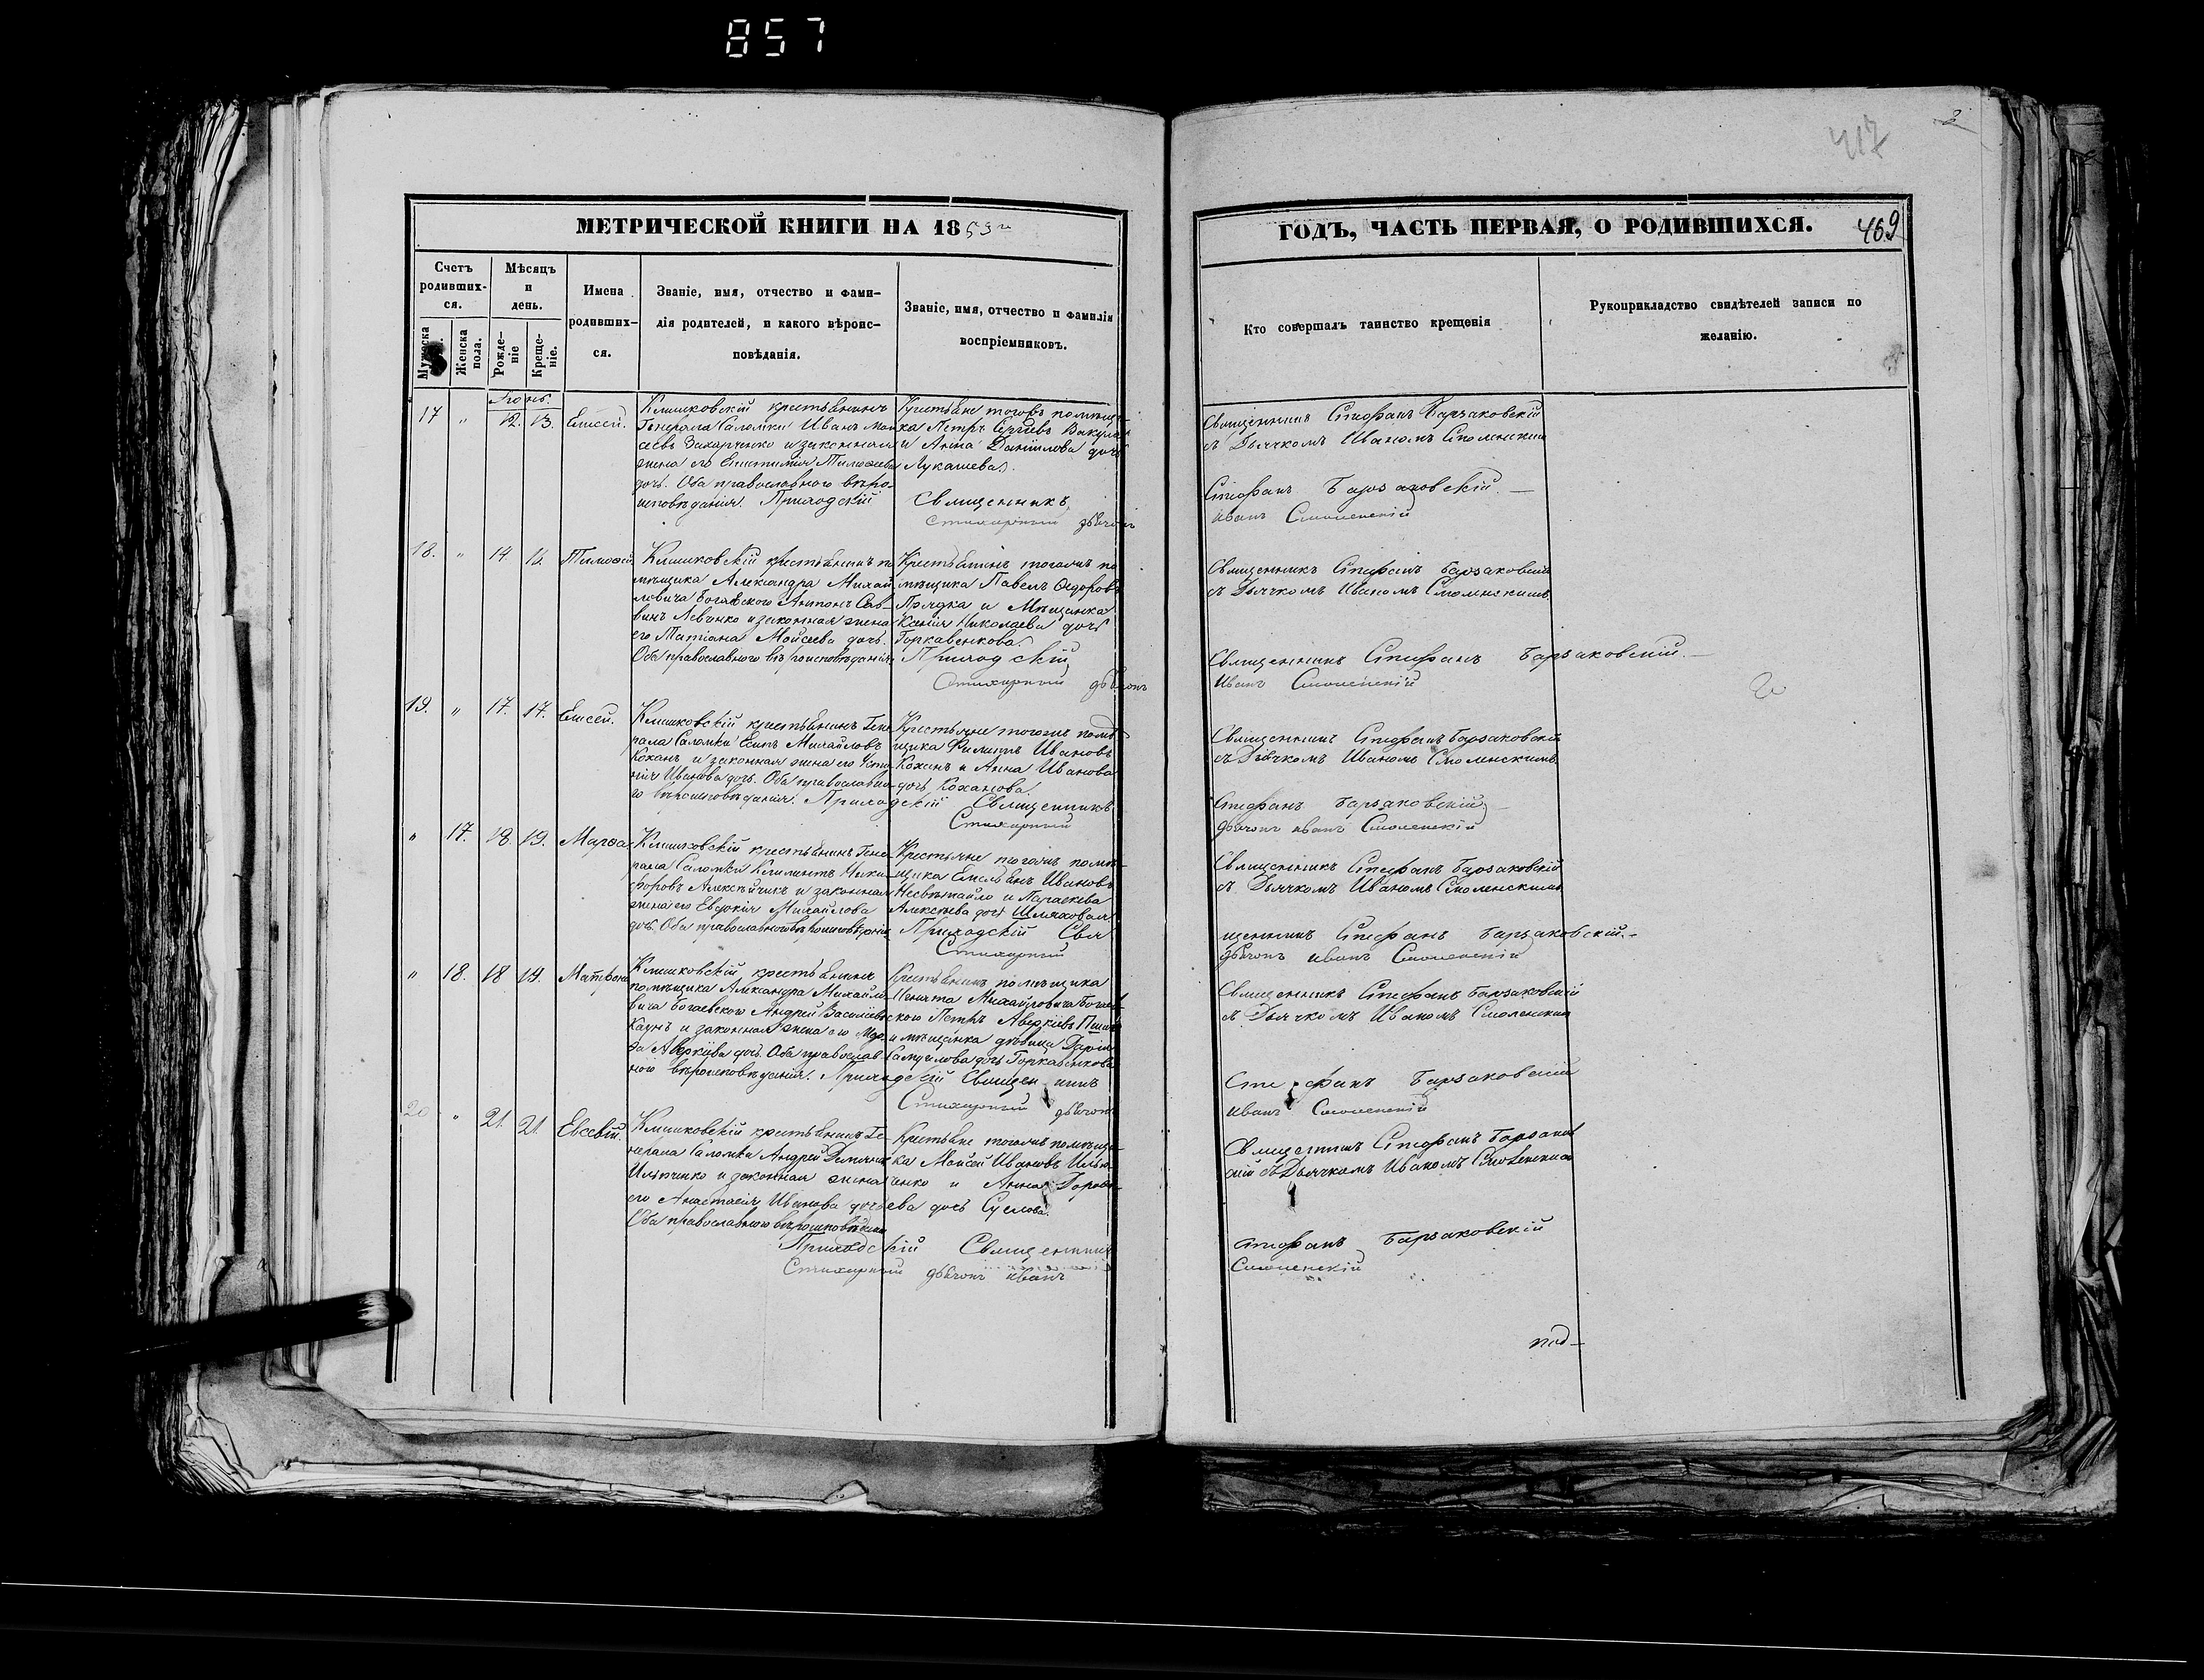 857
417
2
МЕТРИЧЕСКОЙ КНИГИ НА 1853
ГОДЪ, ЧАСТЬ ПЕРВАЯ, О РОДИВШИХСЯ. 469
Счетъ родивших-ся.
Мужеска
Женска пола.
Мѣсяцъ и день.
Рожде-ніе
Креще-ніе.
Имена родивших-ся.
Званіе, имя, отчество и фами-
лія родителей, и какого вѣроис-
повѣданія.
Званіе, имя, отчество и фамилія
воспріемниковъ.
Кто совершалъ таинство крещенія
Рукоприкладство свидѣтелей записи по
желанію.
17 " 12. 13. Елисей.
Клишковскій крестьянинъ
Генерала Саломки Иванъ Мои
сеевъ Захарченко и законная
жена его Тимофеева
дочь. Оба православного вѣро-
исповѣданія. Приходскій
Крестьяне тогожъ помѣщи
ка Петръ Сергіевъ
и Анна Даніилова дочь
Лукашева.
Священникъ
Стихарный дьячокъ
Священникъ Стефанъ Барзаковскій
съ Дьячкомъ Иваномъ Смоленскимъ
Стефанъ Барзаковскій
Иванъ Смоленскій
18. " 14 Тимофей
Клишковскій крестьянинъ по
мѣщика Александра Михай
ловича Богаевского Антонъ Сав-
винъ Левченко и законная жена
его Татіана Моисеева дочь.
Оба православного вѣроисповѣданія
Крестьянинъ тогожъ по
мѣщика Павелъ Федоровъ
Прядка и Мѣщанка
Ксенія Николаева дочь
Горкавенкова.
Приходскій
Стихарный дьячокъ
Священникъ Стефанъ Барзаковскій
съ Дьячкомъ Иваномъ Смоленскимъ
Священникъ Стефанъ Барзаковскій
Иванъ Смоленскій
19. " 17. 17. Елисей.
Клишковскій крестьянинъ Гене
рала Саломки Есипъ Михайловъ
Коханъ и законная жена его
Иванова дочь. Оба православно
го вѣроисповѣданія. Приходскій
Крестьяне тогожъ помѣ
щика Филиппъ Ивановъ
Коханъ и Анна Иванова
дочь Коханова.
Священникъ
Стихарный
Священникъ Стефанъ Барзаковскій
съ Дьячкомъ Иваномъ Смоленскимъ
Стефанъ Барзаковскій
дьячокъ Иванъ Смоленскій
" 17. 18. 19. Марфа
Клишковскій крестьянинъ Гене
рала Саломки Климентъ Ники
форовъ Алексѣйчикъ и законная
жена его Евдокія Михайлова
дочь. Оба православного вѣроисповѣданія
Крестьяне тогожъ помѣ
щика Емельянъ Ивановъ
Несвѣтайло и Параскева
Алексѣева дочь Шляховая.
Приходскій Свя
Стихарный
Священникъ Стефанъ Барзаковскій
съ Дьячкомъ Иваномъ Смоленскимъ
щенникъ Стефанъ Барзаковскій
дьячокъ Иванъ Смоленскій
" 18. 18 19. Матрона
Клишковскій крестьянинъ
помѣщика Александра Михайло
вича Богаевского Андрей Василіевъ
и законная жена его
Аверкіева дочь. Оба православ
ного вѣроисповѣданія. Приходскій
Крестьянинъ помѣщика
Игната Михайловича Богаев
ского Петръ Аверкіевъ
и мѣщанка дѣвица Дарія
Самуилова дочь Горкавенкова
Священникъ
Стихарный дьячокъ
Священникъ Стефанъ Барзаковскій
съ Дьячкомъ Иваномъ Смоленским
Стефанъ Барзаковскій
Иванъ Смоленскій
20 " 21. 21. Евсевій.
Клишковскій крестьянинъ Ге-
нерала Саломки Андрей
и законная жена
его Анастасія Иванова дочь
Оба православного вѣроисповѣданія
Приходскій
Стихарный
Крестьяне тогожъ помѣщи
ка Моисей Ивановъ Илья
ченко и Анна
ева дочь Суслова.
Священникъ
дьячокъ Иванъ
Священникъ Стефанъ Барзаков
скій съ Дьячкомъ Иваномъ Смоленским
Стефанъ Барзаковскій
Смоленскій